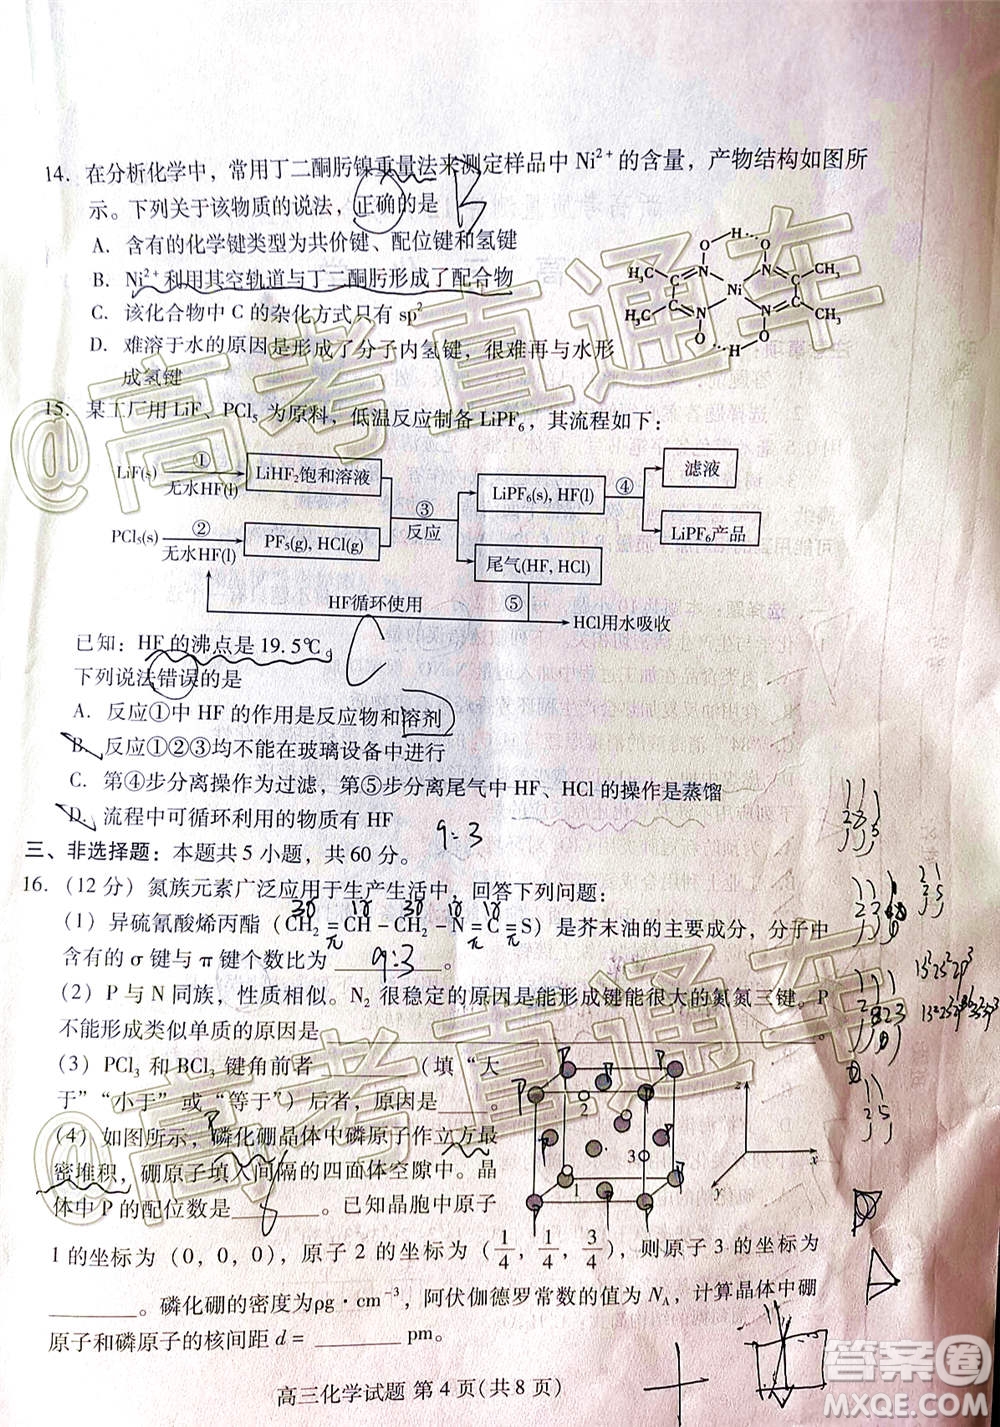 14. 在分析化学中，常用丁二酮肟镍重量法来测定样品中 Ni²⁺ 的含量，产物结构如图所
示。下列关于该物质的说法，正确的是 B
A. 含有的化学键类型为共价键、配位键和氢键
B. Ni²⁺利用其空轨道与丁二酮肟形成了配合物
C. 该化合物中 C 的杂化方式只有 sp²
D. 难溶于水的原因是形成了分子内氢键，很难再与水形
成氢键
O H O
H₃C N N CH₃
Ni
H₃C N N CH₃
O H O
15. 某工厂用 LiF、PCl₅ 为原料，低温反应制备 LiPF₆，其流程如下：
LiF(s) ① 无水HF(l) LiHF₂饱和溶液
PCl₅(s) ② 无水HF(l) PF₅(g), HCl(g)
③ 反应
LiPF₆(s), HF(l) ④ 滤液
LiPF₆产品
尾气(HF, HCl)
HF循环使用 ⑤ HCl用水吸收
已知：HF 的沸点是 19.5℃。 C
下列说法错误的是
A. 反应①中 HF 的作用是反应物和溶剂
B. 反应①②③均不能在玻璃设备中进行
C. 第④步分离操作为过滤，第⑤步分离尾气中 HF、HCl 的操作是蒸馏
D. 流程中可循环利用的物质有 HF
9:3
三、非选择题：本题共 5 小题，共 60 分。
16. （12 分）氮族元素广泛应用于生产生活中，回答下列问题：
（1）异硫氰酸烯丙酯（CH₂=CH－CH₂－N=C=S）是芥末油的主要成分，分子中
含有的 σ 键与 π 键个数比为 9:3 。
（2）P 与 N 同族，性质相似。N₂ 很稳定的原因是能形成键能很大的氮氮三键。P
不能形成类似单质的原因是 。
（3）PCl₃ 和 BCl₃ 键角前者 （填“大
于”“小于”或“等于”）后者，原因是 。
（4）如图所示，磷化硼晶体中磷原子作立方最
密堆积，硼原子填入间隔的四面体空隙中。晶
体中 P 的配位数是 8 。已知晶胞中原子
1 的坐标为（0，0，0），原子 2 的坐标为（1/4，1/4，3/4），则原子 3 的坐标为
。磷化硼的密度为ρg·cm⁻³，阿伏伽德罗常数的值为 N_A，计算晶体中硼
原子和磷原子的核间距 d = pm。
2
3
1
z
y
x
高三化学试题 第 4 页(共 8 页)
@高考直通车
@高考直通车
答案圈
MXQE.COM